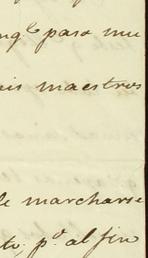 ngl.º para mu
is maestros
le marcharse
to, p.º al fin